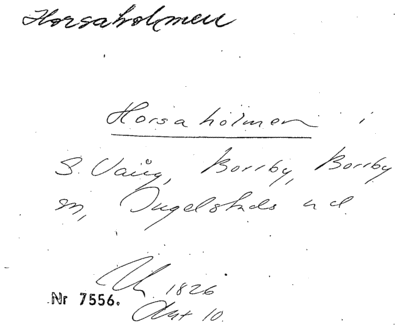 Horsaholmen
Horsaholmen i
S. Vång, Borrby, Borrby
sn, Ingelstads hd.
1826
Nr 7556. Akt 10.